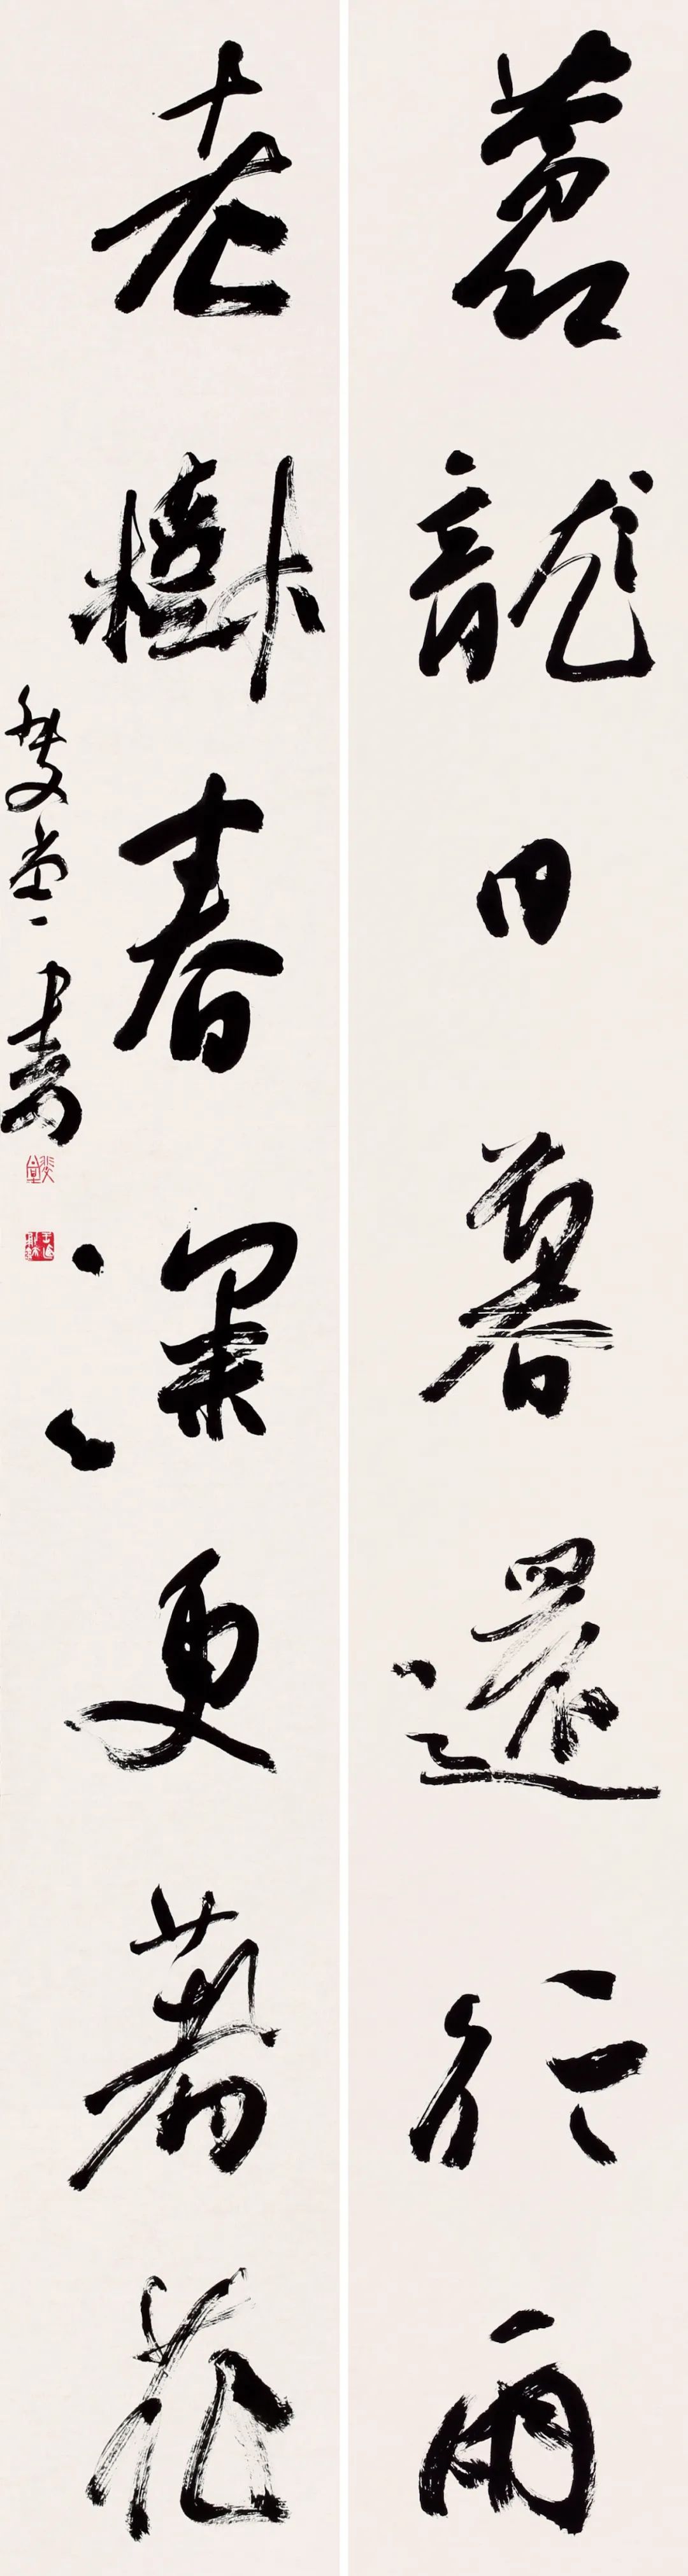 蒼龍日暮還行雨
老樹春深更著花
堂書